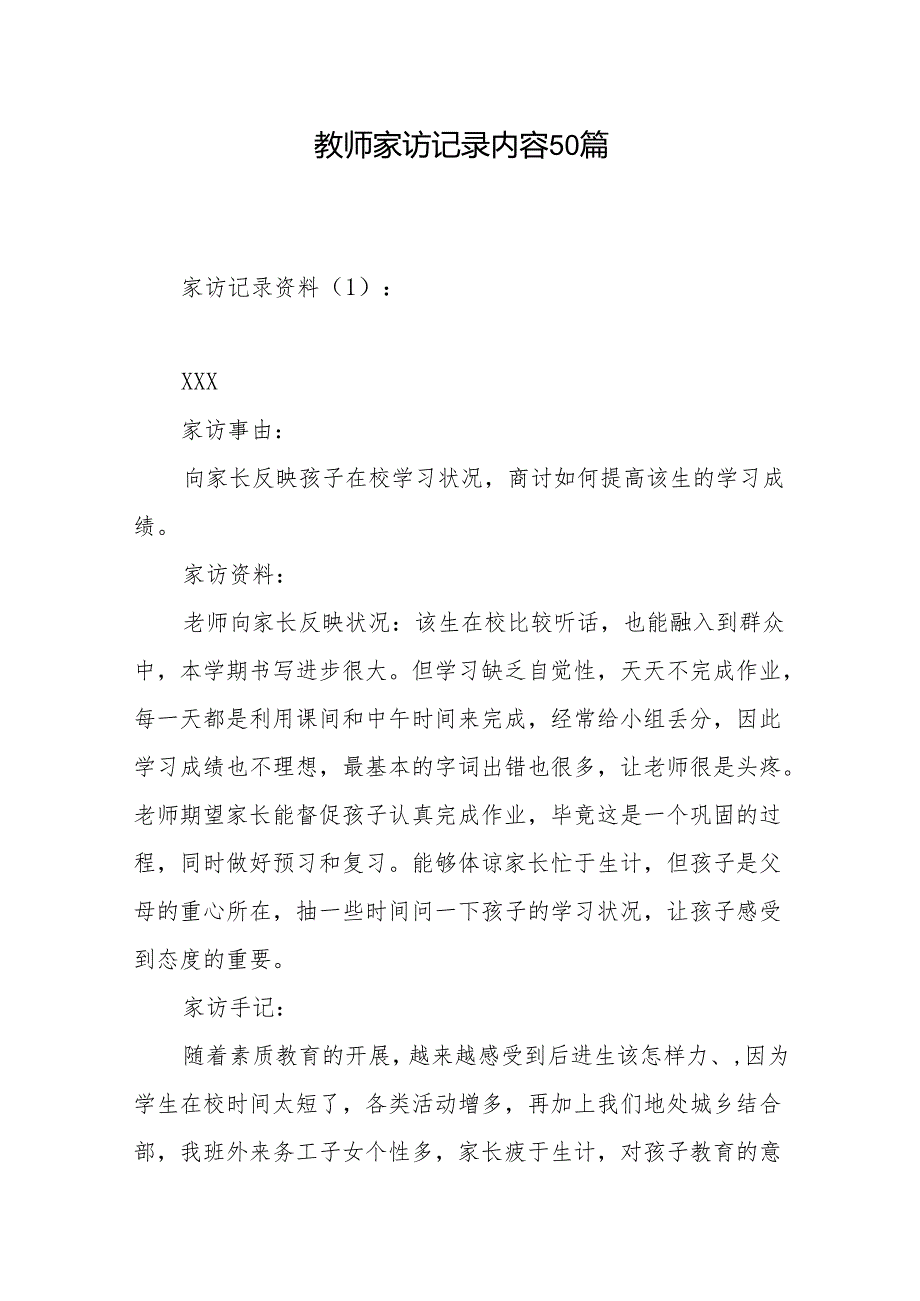 教师家访记录内容50篇
家访记录资料（1）：
XXX
家访事由：
向家长反映孩子在校学习状况，商讨如何提高该生的学习成
绩。
家访资料：
老师向家长反映状况：该生在校比较听话，也能融入到群众
中，本学期书写进步很大。但学习缺乏自觉性，天天不完成作业，
每一天都是利用课间和中午时间来完成，经常给小组丢分，因此
学习成绩也不理想，最基本的字词出错也很多，让老师很是头疼。
老师期望家长能督促孩子认真完成作业，毕竟这是一个巩固的过
程，同时做好预习和复习。能够体谅家长忙于生计，但孩子是父
母的重心所在，抽一些时间问一下孩子的学习状况，让孩子感受
到态度的重要。
家访手记：
随着素质教育的开展，越来越感受到后进生该怎样力、,因为
学生在校时间太短了，各类活动增多，再加上我们地处城乡结合
部，我班外来务工子女个性多，家长疲于生计，对孩子教育的意